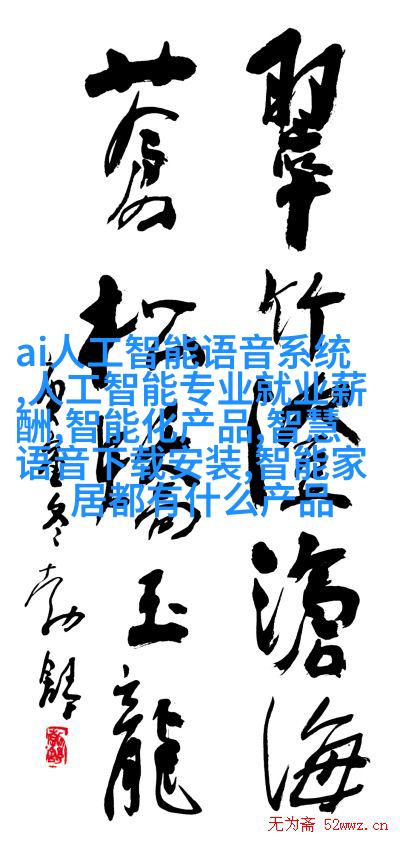 翠竹滄海
蒼松玉龍
ai人工智能语音系统
,人工智能专业就业薪
酬,智能化产品,智慧
语音下载安装,智能家
居都有什么产品
无为斋 52wwz.cn